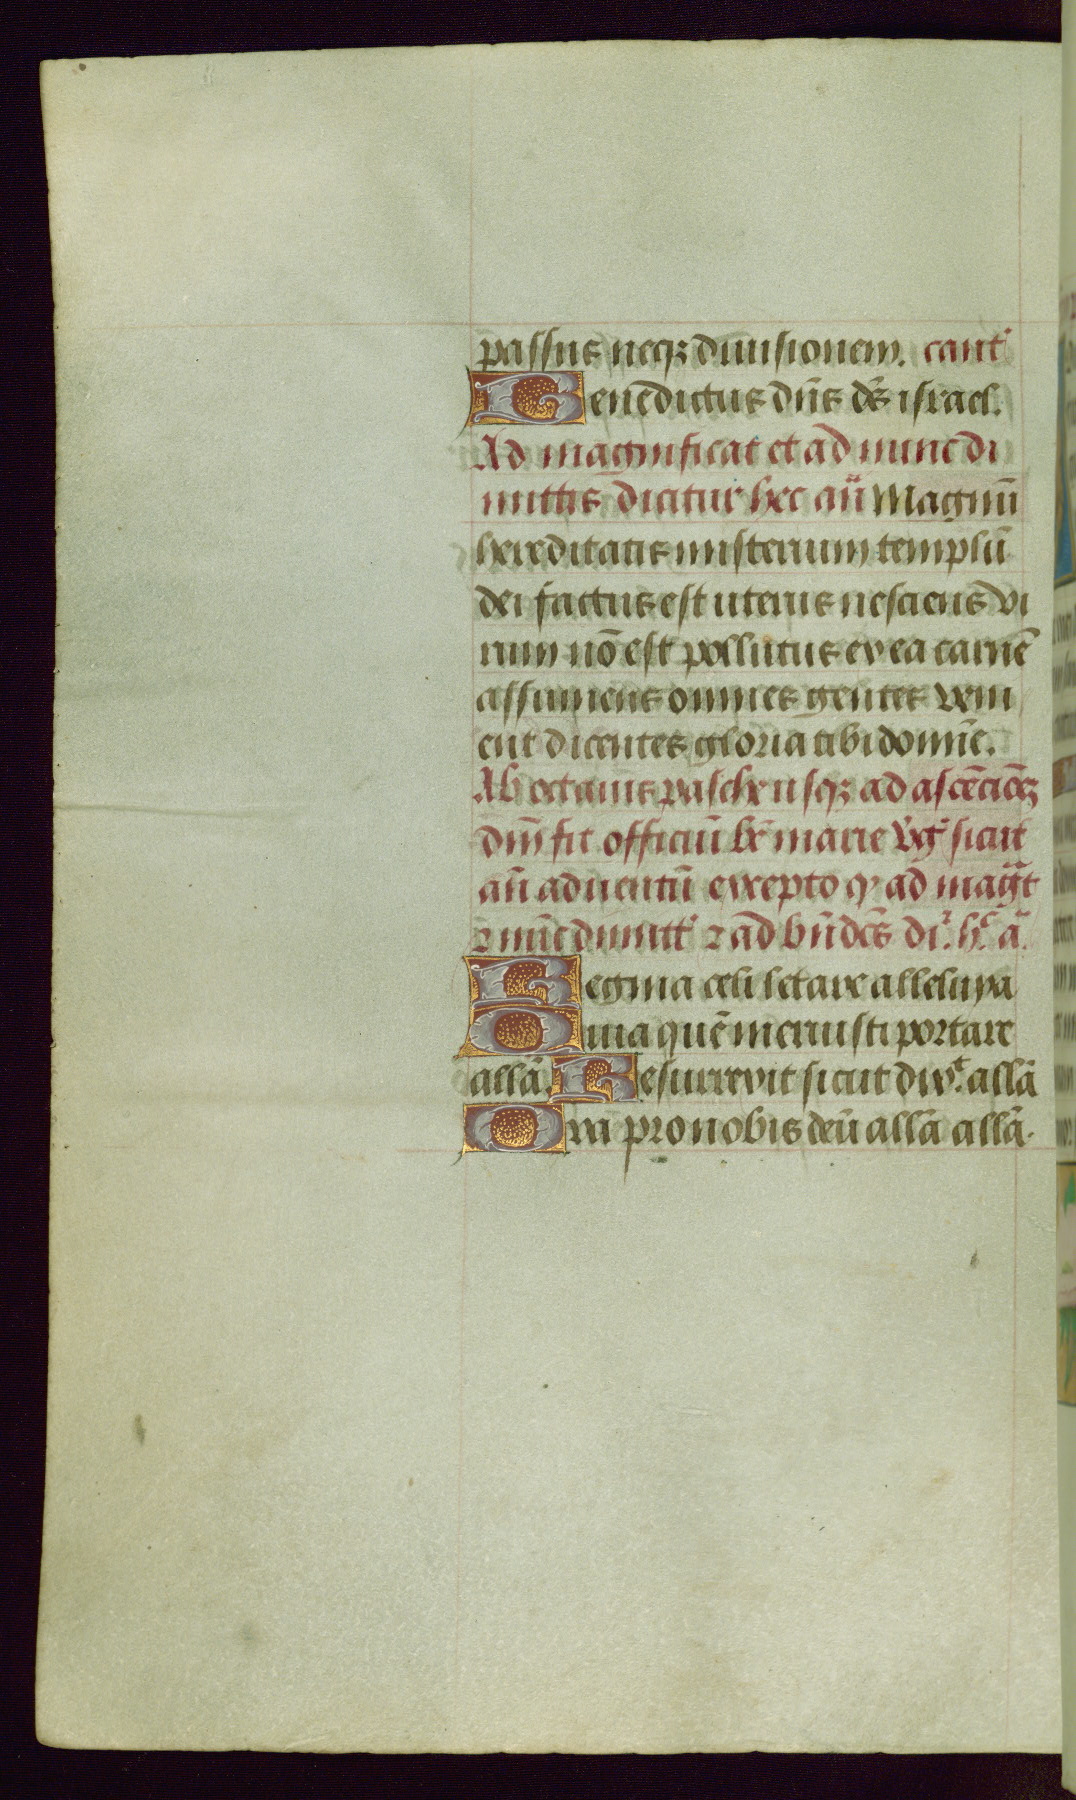 passus neqꝫ diuisionem. cant'
Benedictus dn̄s de᷒ israel.
Ad magnificat et ad nunc di
mittis dicitur hec an̄ Magnū
hereditatis misterium templū
dei factus est uterus nesciens vi
rum nō est pollutus ex ea carnē
assumens omnes gentes veni
ent dicentes gloria tibi domīe.
Ab octauis pasche usqꝫ ad ascēciōeꝫ
dm̄ fit officiū be marie v̓g̓ sicut
an̄ aduentū excepto q ad mag̃t
⁊ nūc dimitt' ⁊ ad bn̄dc̄s dr̄. h̓ ā.
Regina celi letare alleluya
Quia quē meruisti portare
allā. Resurrexit sicut dixͭ. allā
Ora pro nobis deū allā allā.